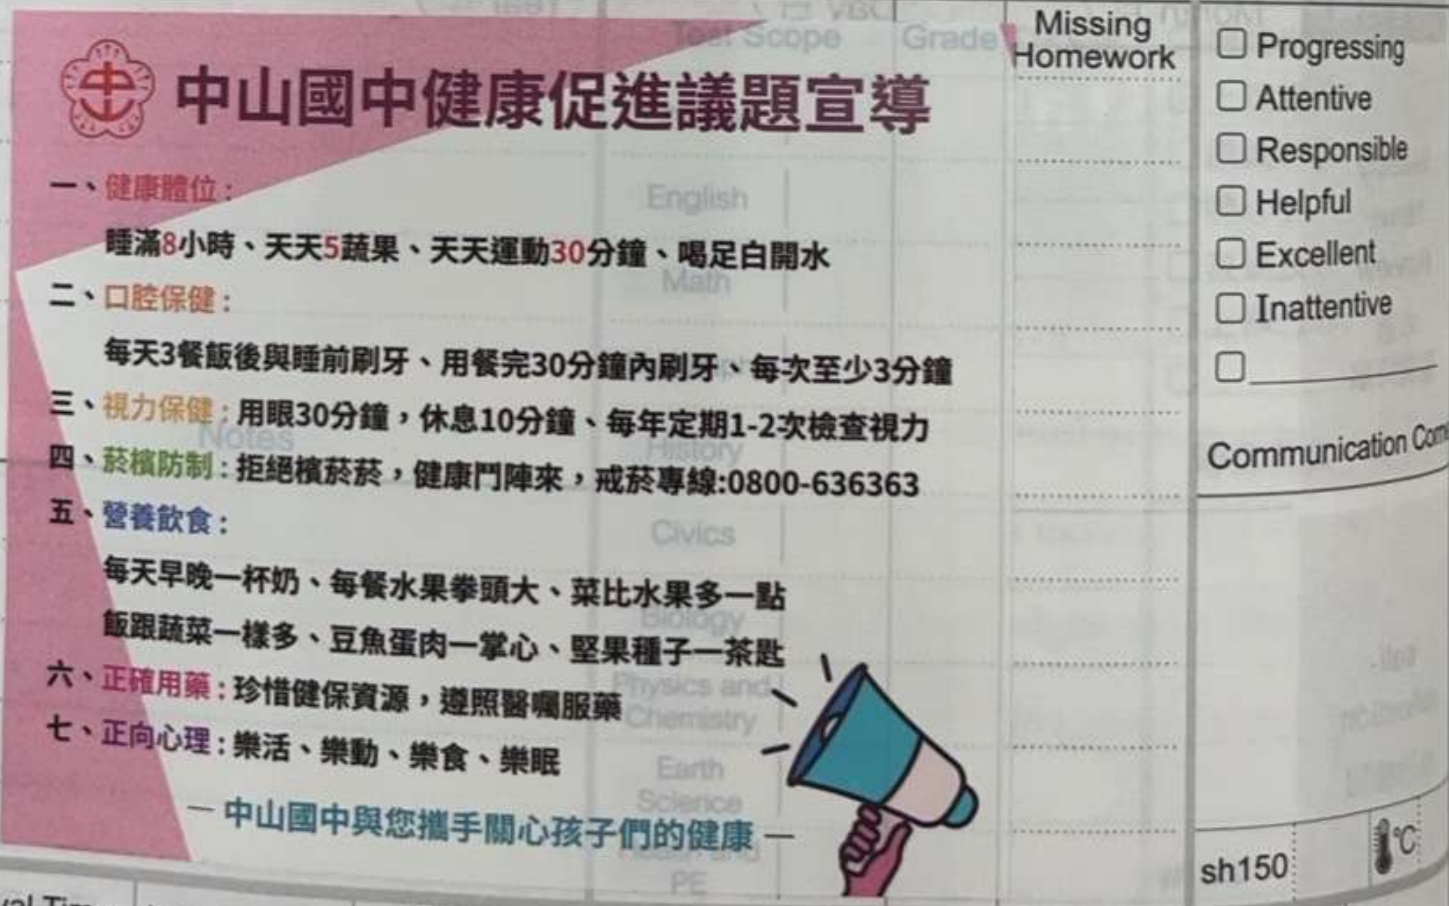 中山國中健康促進議題宣導
一、健康體位：
睡滿8小時、天天5蔬果、天天運動30分鐘、喝足白開水
二、口腔保健：
每天3餐飯後與睡前刷牙、用餐完30分鐘內刷牙、每次至少3分鐘
三、視力保健：用眼30分鐘，休息10分鐘、每年定期1-2次檢查視力
四、菸檳防制：拒絕檳菸菸，健康鬥陣來，戒菸專線:0800-636363
五、營養飲食：
每天早晚一杯奶、每餐水果拳頭大、菜比水果多一點
飯跟蔬菜一樣多、豆魚蛋肉一掌心、堅果種子一茶匙
六、正確用藥：珍惜健保資源，遵照醫囑服藥
七、正向心理：樂活、樂動、樂食、樂眠
— 中山國中與您攜手關心孩子們的健康 —
Test Scope
Grade
English
Math
Notes
History
Civics
Biology
Physics and
Chemistry
Earth
Science
Health and
PE
Missing
Homework
Progressing
Attentive
Responsible
Helpful
Excellent
Inattentive
Communication
sh150
°C